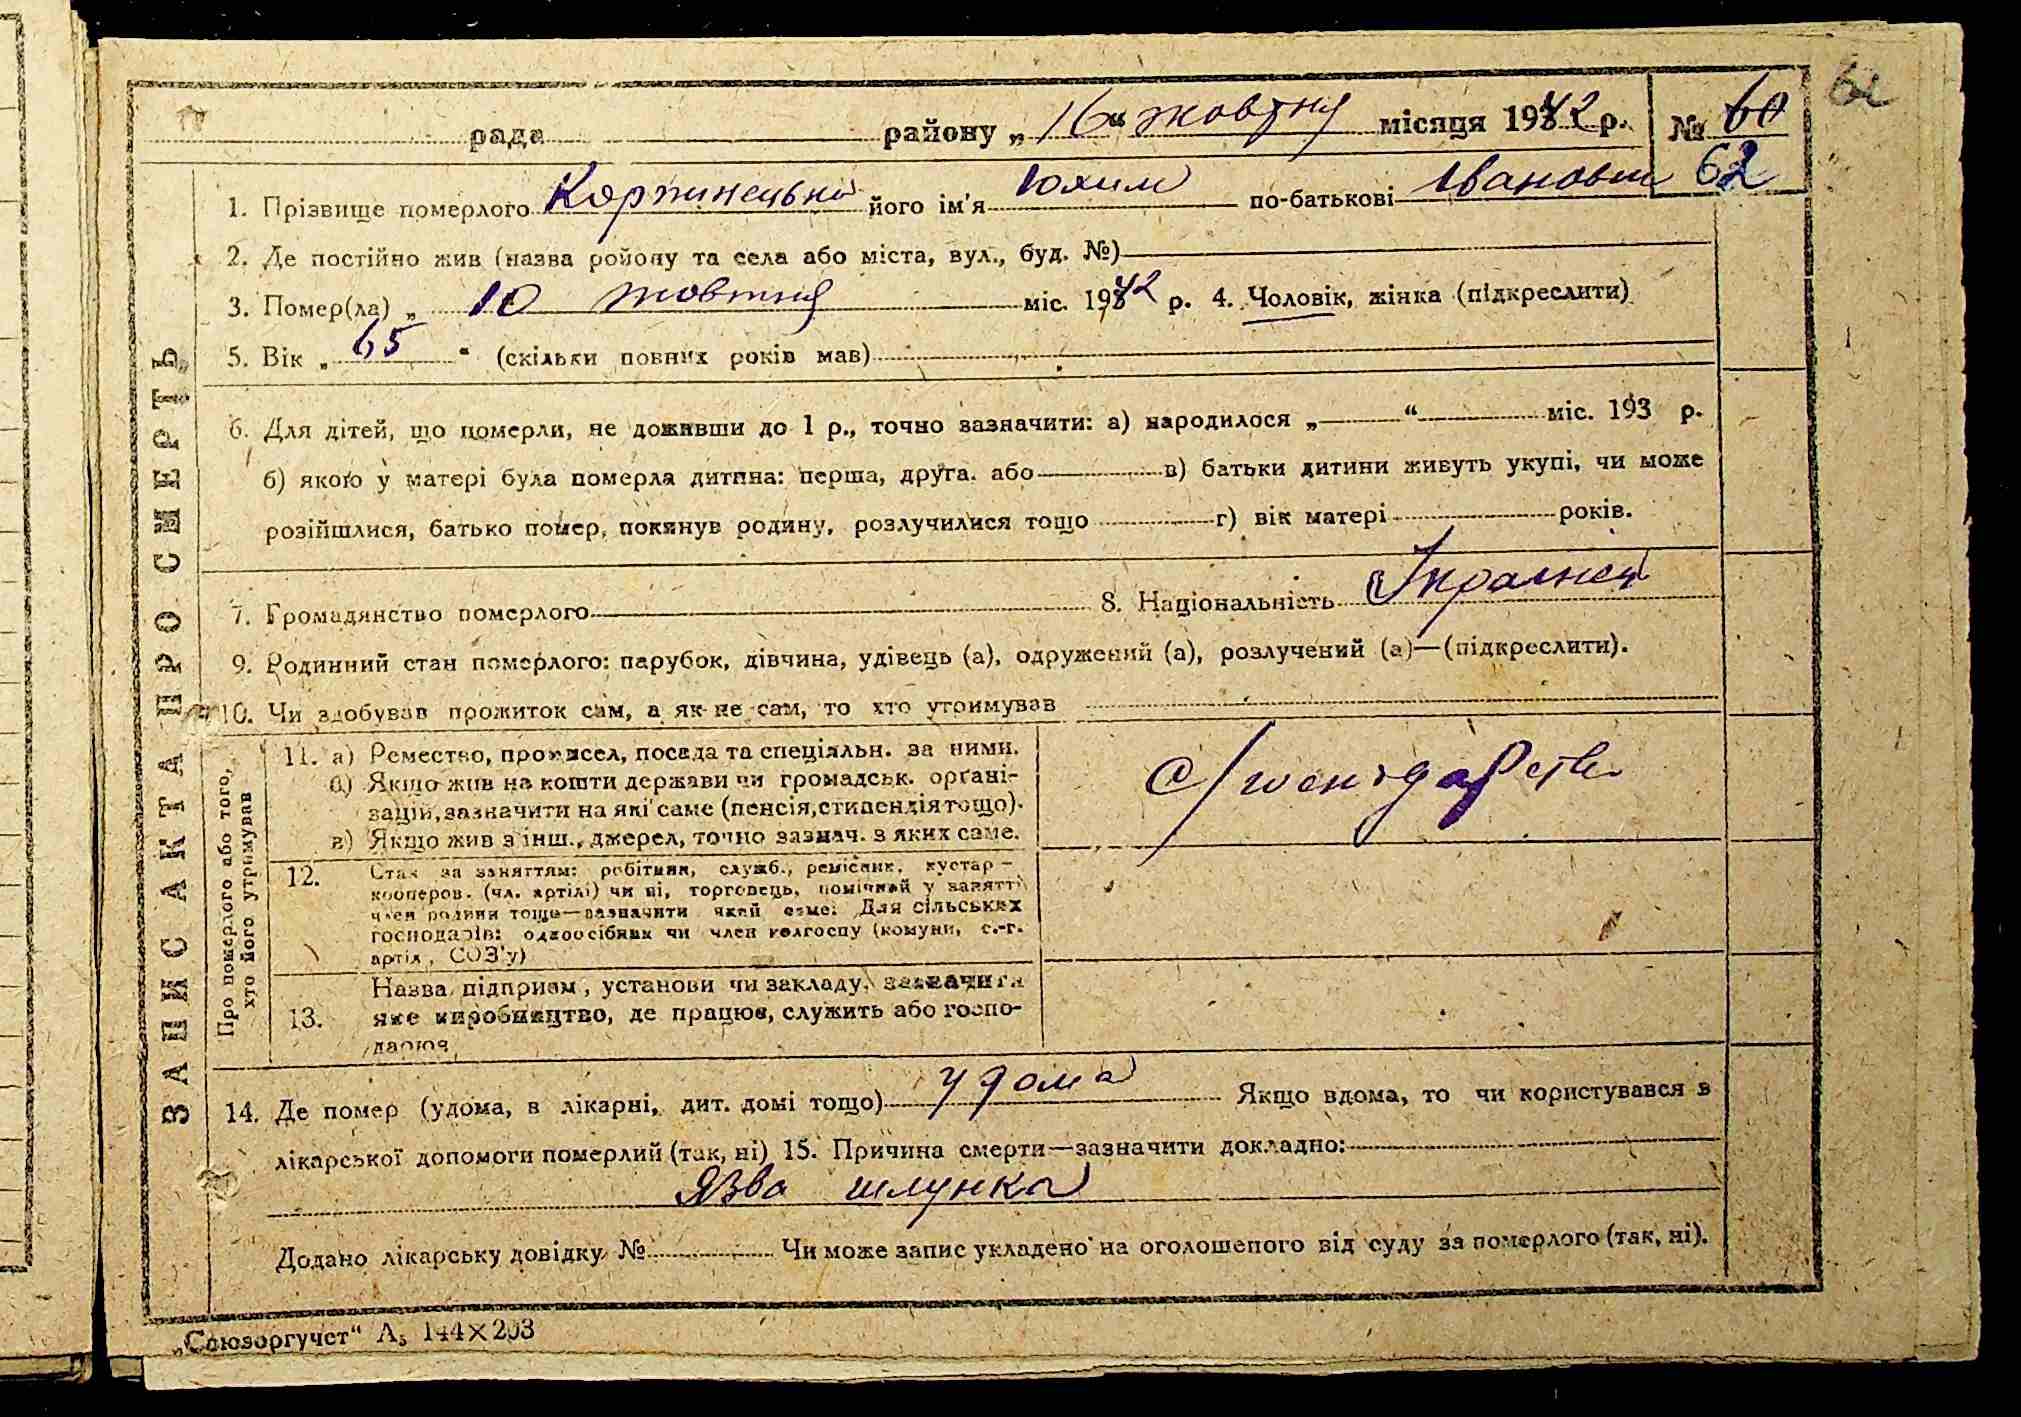 рада району „ 16 “ жовтня місяця 1942 р. № 60
62
1. Прізвище померлого його ім'я Юхим по-батькові Іванович
2. Де постійно жив (назва району та села або міста, вул., буд. №)
3. Помер(ла) „ 10 жовтня міс. 1942 р. 4. Чоловік, жінка (підкреслити)
5. Вік „ 65 “ (скільки повних років мав)
6. Для дітей, що померли, не доживши до 1 р., точно зазначити: а) народилося „ “ міс. 193 р.
б) якою у матері була померла дитина: перша, друга. або в) батьки дитини живуть укупі, чи може
розійшлися, батько помер, покинув родину, розлучилися тощо г) вік матері років.
7. Громадянство померлого 8. Національність Українец
9. Родинний стан померлого: парубок, дівчина, удівець (а), одружений (а), розлучений (а)—(підкреслити).
10. Чи здобував прожиток сам, а як не сам, то хто утримував
ЗАПИС АКТА ПРО СМЕРТЬ
Про померлого або того, хто його утримував
11. а) Ремество, промисел, посада та спеціяльн. за ними.
б) Якщо жив на кошти держави чи громадськ. органі-
зацій, зазначити на які саме (пенсія, стипендія тощо).
в) Якщо жив з інш., джерел, точно зазнач. з яких саме.
12. Стан за заняттям: робітник, служб., ремісник, кустар –
кооперов. (чл. артілі) чи ні, торговець, помічний у занятті
член родини тощо—зазначити який саме: Для сільських
господарів: одноосібник чи член колгоспу (комуни, с.-г.
артіл, СОЗ'у)
13. Назва підприєм, установи чи закладу, зазначити
яке виробництво, де працює, служить або госпо-
дарює
14. Де помер (удома, в лікарні, дит. домі тощо) удома Якщо вдома, то чи користувався в
лікарської допомоги померлий (так, ні) 15. Причина смерти—зазначити докладно:
язва шлунка
Додано лікарську довідку № Чи може запис укладено на оголошеного від суду за померлого (так, ні).
„Союзоргучет“ А5 144×203